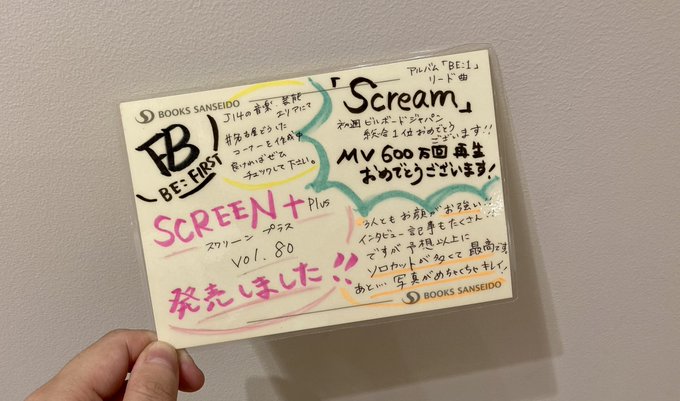 BOOKS SANSEIDO
BE:FIRST
J14の音楽、芸能
エリアにて
#名古屋どうした
コーナーを作成中
良ければぜひ
チェックして下さい。
アルバム「BE:1」
リード曲
「Scream」
初週ビルボードジャパン
総合1位おめでとう
ございます!!
MV 600万回再生
おめでとうございます!
SCREEN+Plus
スクリーン プラス
vol.80
発売しました!!
7人ともお顔がお強い!!
インタビュー記事もたくさん!!
ですが予想以上に
ソロカットが多くて最高です
あと… 写真がめちゃくちゃキレイ!
BOOKS SANSEIDO